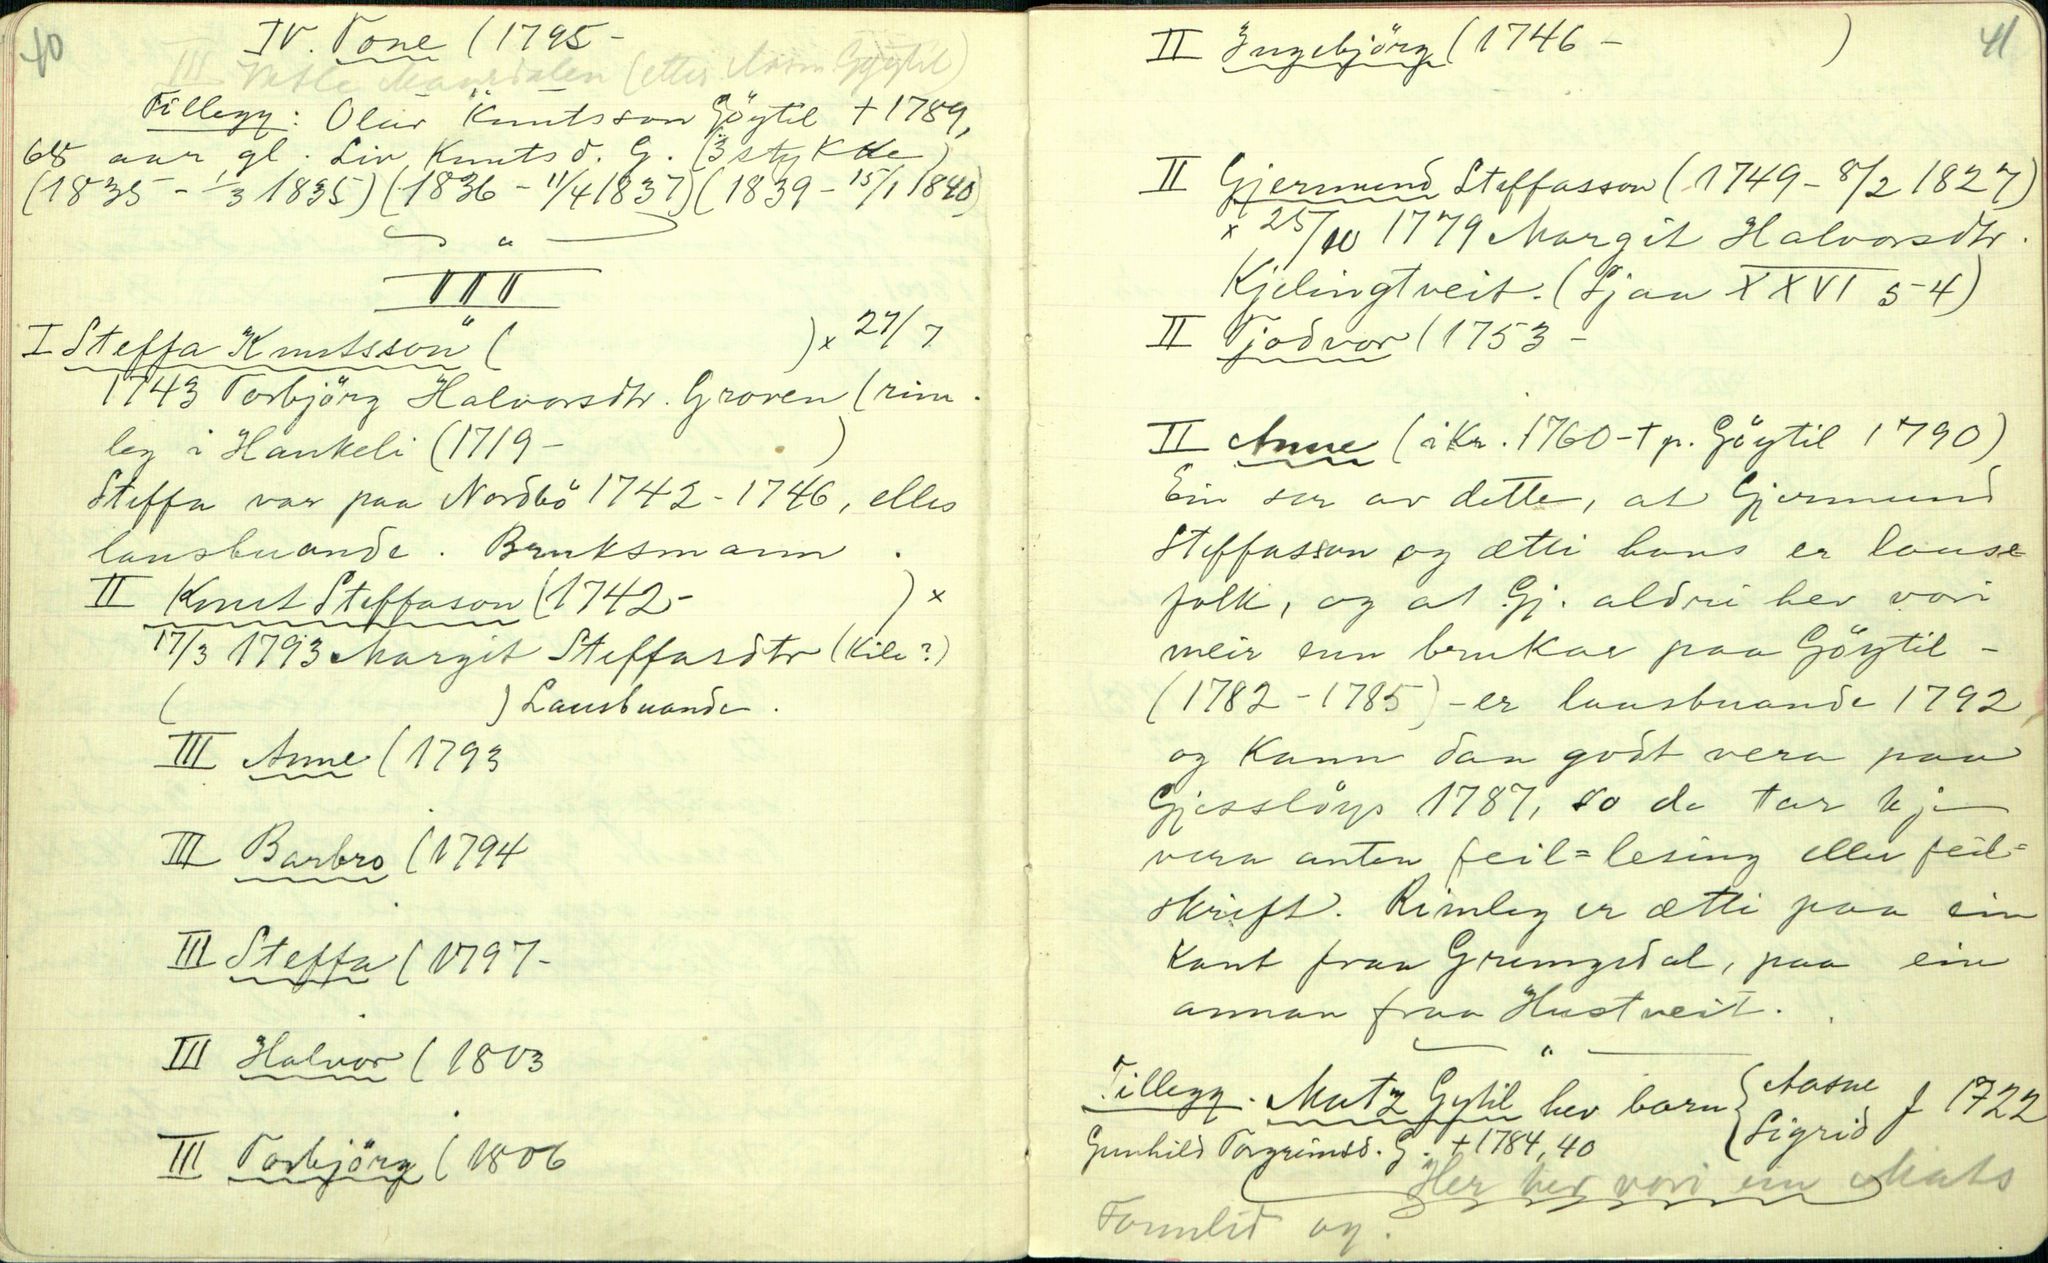 40
IV. Tone (1795-
III Vetle Maurdalen (etter Aasm. Göytil)
Tillegg: Olav Knutsson Göytil + 1789,
68 aar gl. Liv Knutsd. G. (3 stykke)
(1835 - 1/3 1835) (1836 - 11/4 1837) (1839 - 15/1 1840)
III
I Steffa Knutsson ( ) x 27/7
1743 Torbjörg Halvorsdtr. Groven (rim-
leg i Haukeli (1719- )
Steffa var paa Nordbö 1742-1746, elles
lausbuande. Bruksmann.
II Knut Steffason (1742- ) x
17/3 1793 Margit Steffasdtr (Kili?)
( ) Lausbuande.
III Anne (1793
III Barbro (1794
III Steffa (1797-
III Halvor (1803
III Torbjörg (1806
41
II Ingebjörg (1746 - )
II Gjermund Steffasson (1749 - 8/2 1827)
x 25/10 1779 Margit Halvorsdtr.
Kjelingtveit. (Sjaa XXVI 54)
II Tjodvor (1753 -
II Anne (ikr. 1760 - + p. Göytil 1790)
Ein ser av dette, at Gjermund
Steffasson og ætti hans er lause
folk, og at Gj. aldri hev vori
meir enn brukar paa Göytil -
(1782 - 1785) - er lausbuande 1792,
og kann dan godt vera paa
Gjesslöys 1787, so de tar kje
vera anten feil=lesing eller feil=
skrift. Rimleg er ætti paa ein
kant fraa Grungedal, paa ein
annan fraa Hustveit.
Tillegg. Matz Gytil hev born { Aasne
Sigrid f 1722
Gunhild Torgrimsd. G. + 1784, 40
Her hev vori ein Mats
Tormlid og.